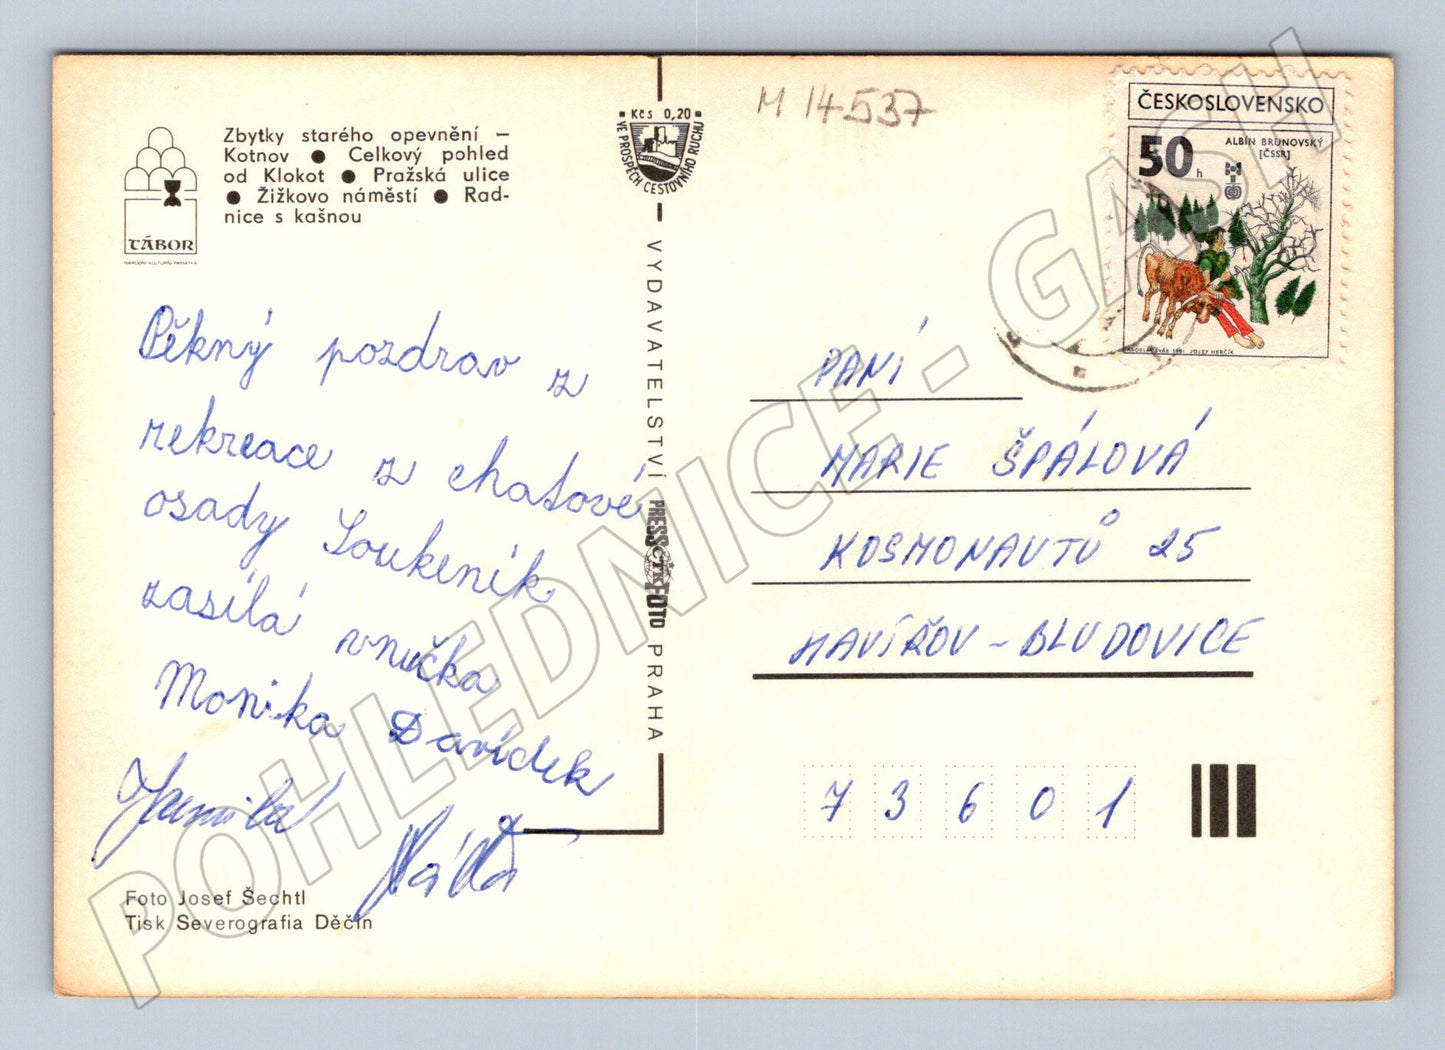 Zbytky starého opevnění –
Kotnov ● Celkový pohled
od Klokot ● Pražská ulice
● Žižkovo náměstí ● Rad-
nice s kašnou
TÁBOR
NÁRODNÍ KULTURNÍ PAMÁTKA
Pěkný pozdrav z
rekreace z chatové
osady Soukeník
zasílá vnučka
Monika Davídek
Jamila
Foto Josef Šechtl
Tisk Severografia Děčín
Kčs 0,20
VE PROSPĚCH CESTOVNÍHO RUCHU
VYDAVATELSTVÍ PRESSFOTO PRAHA
ČTK
M 14537
ČESKOSLOVENSKO
50 h
ALBÍN BRUNOVSKÝ
[ČSSR]
JAROSLAV ŠVÁB 1981 JOSEF HERČÍK
PANÍ
MARIE ŠPÁLOVÁ
KOSMONAUTŮ 25
HAVÍŘOV – BLUDOVICE
73601
POHLEDNICE - GASH